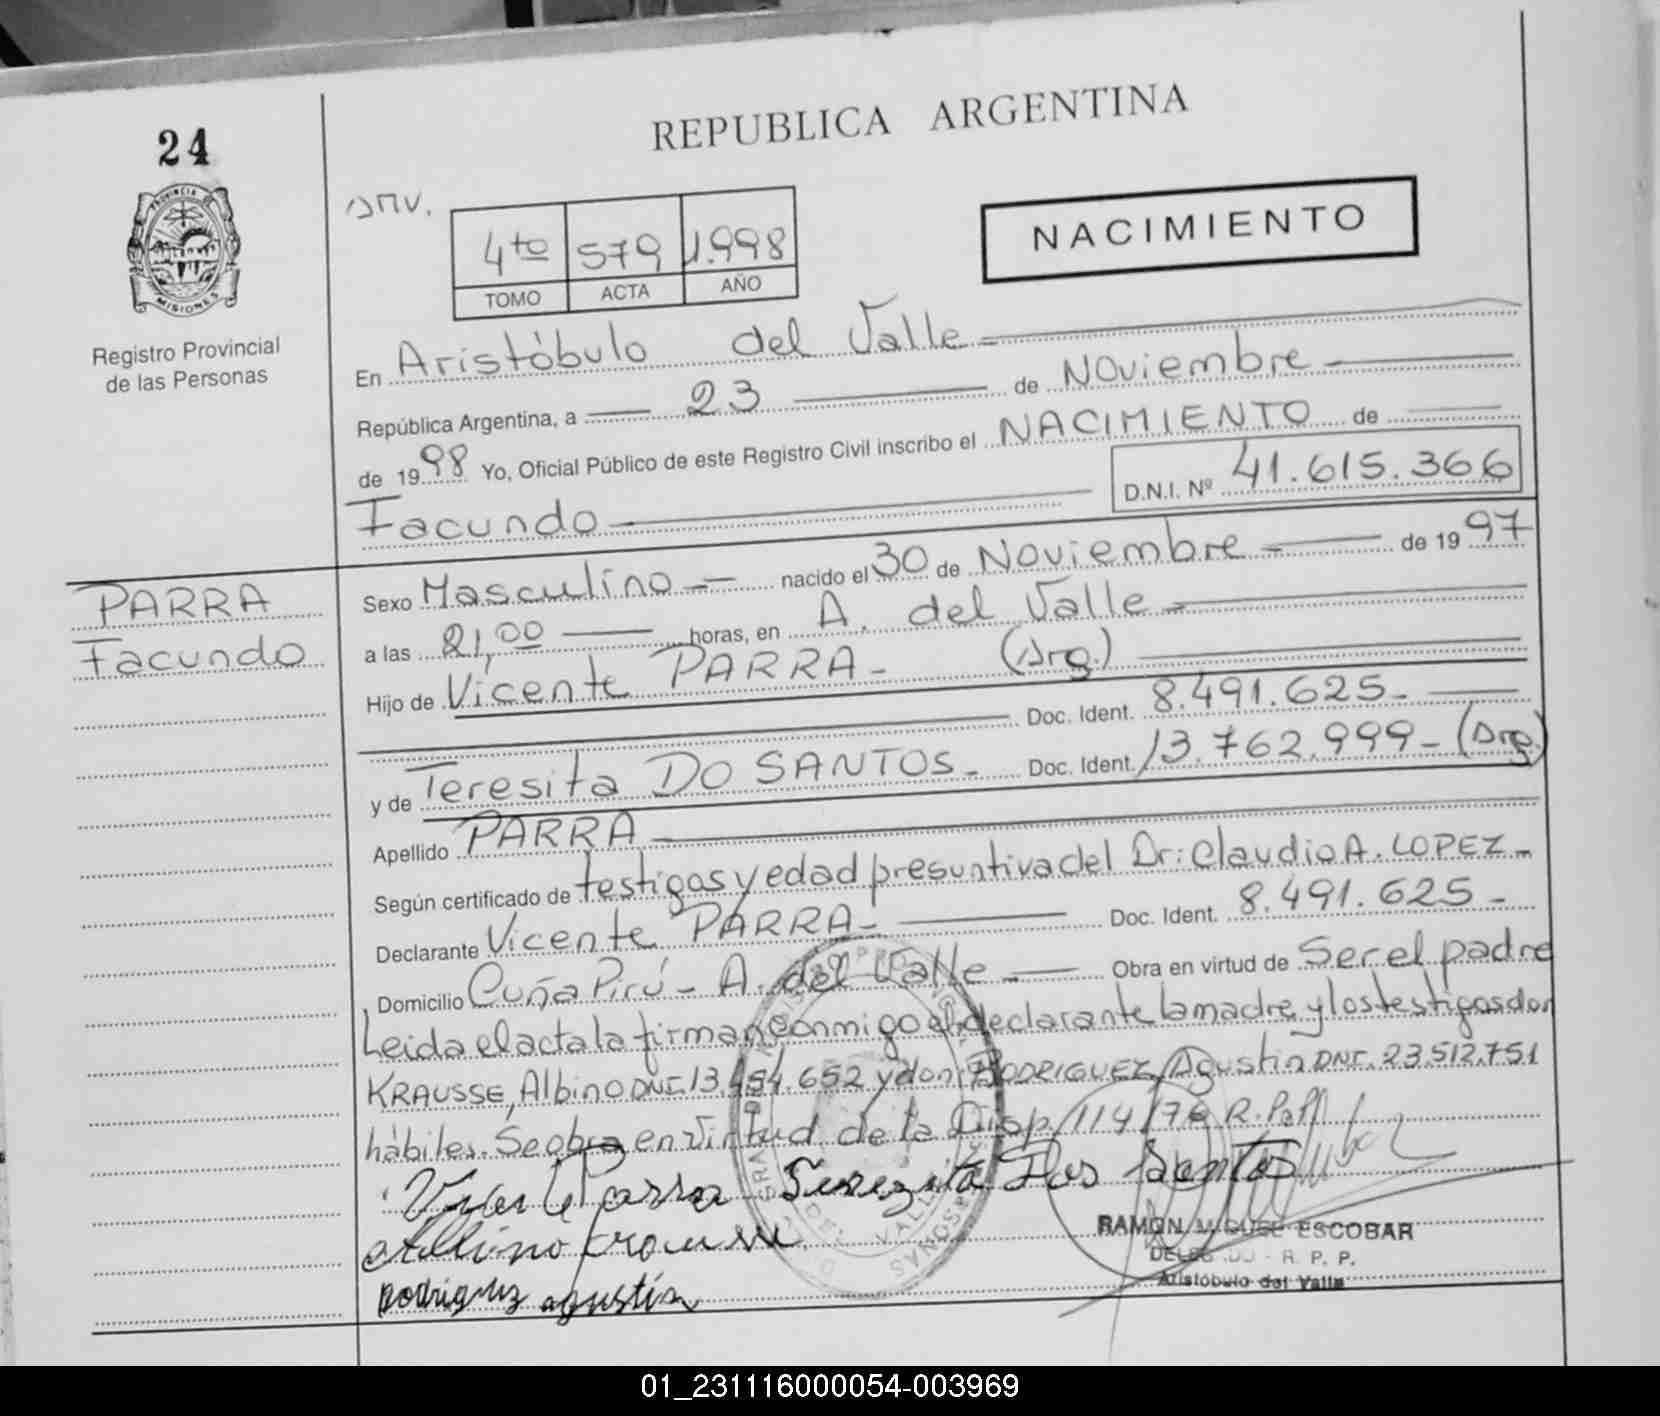 24
PROVINCIA DE
MISIONES
Registro Provincial
de las Personas
REPUBLICA ARGENTINA
4to 579 1.998
TOMO ACTA AÑO
NACIMIENTO
En Aristóbulo del Valle
República Argentina, a 23 de Noviembre
de 1998 Yo, Oficial Público de este Registro Civil inscribo el NACIMIENTO de
Facundo D.N.I. Nº 41.615.366
PARRA
Facundo
Sexo Masculino nacido el 30 de Noviembre de 1997
a las 21,00 horas, en A. del Valle
Hijo de Vicente PARRA - (Arg.)
Doc. Ident. 8.491.625-
y de Teresita DO SANTOS- Doc. Ident. 13.762.999- (Arg.)
Apellido PARRA
Según certificado de testigos y edad presuntiva del Dr: Claudio A. LOPEZ-
Declarante Vicente PARRA- Doc. Ident. 8.491.625-
Domicilio Cuña Pirú - A. del Valle Obra en virtud de Ser el padre
Leida el acta la firman conmigo el declarante la madre y los testigos don
KRAUSSE, Albino DNI. 13.454.652 y don: RODRIGUEZ, Agustin DNI. 23.512.751
hábiles. Se obra en virtud de la Disp. 114/78 R.P.P.
Vicente Parra Terezita Dos Santos
Albino Krausse
RAMON MIGUEL ESCOBAR
rodriguez agustín
DELEGADO - R. P. P.
Aristóbulo del Valle
01_231116000054-003969